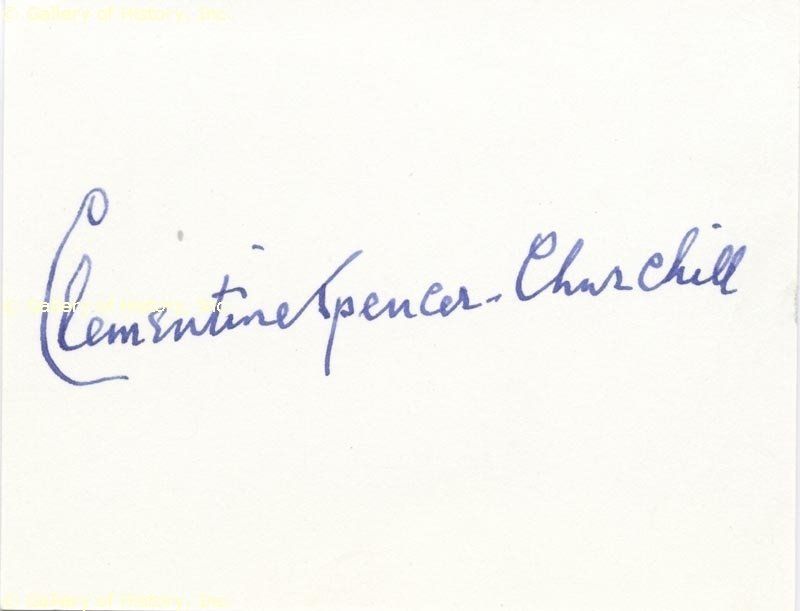 © Gallery of History, Inc.
Clementine Spencer-Churchill
© Gallery of History, Inc.
© Gallery of History, Inc.